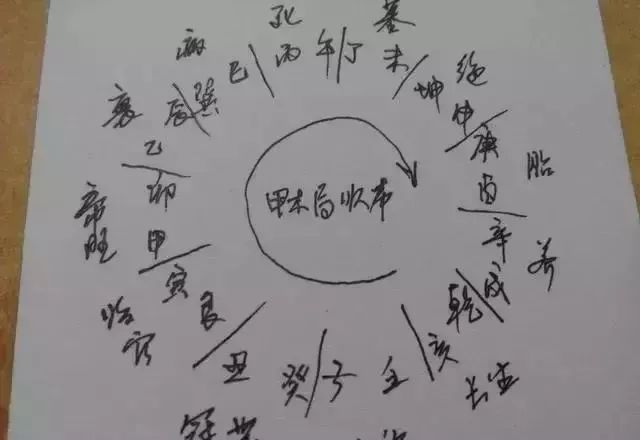 甲木局顺布
丙午
丁未
坤申
庚酉
辛戌
乾亥
壬子
癸丑
艮寅
甲卯
乙辰
巽巳
死
墓
绝
胎
养
长生
冠
临官
帝旺
衰
病